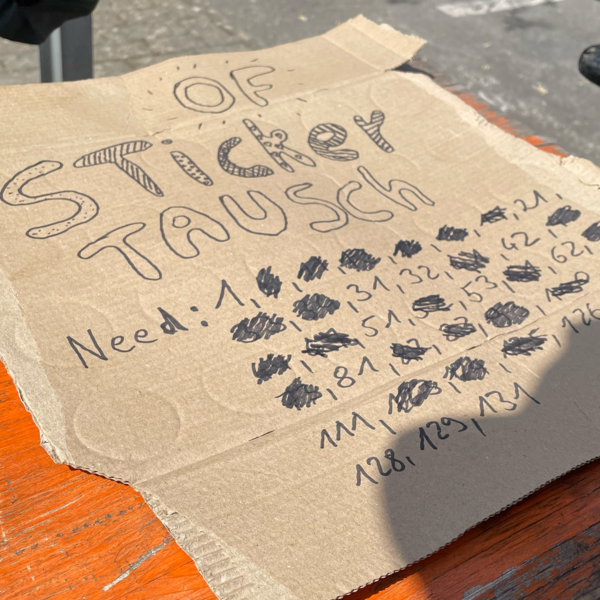 OF
Sticker
TAUSCH
Need: 1, 21,
31, 32, 42,
51, 53, 62,
81,
111, 126
128, 129, 131